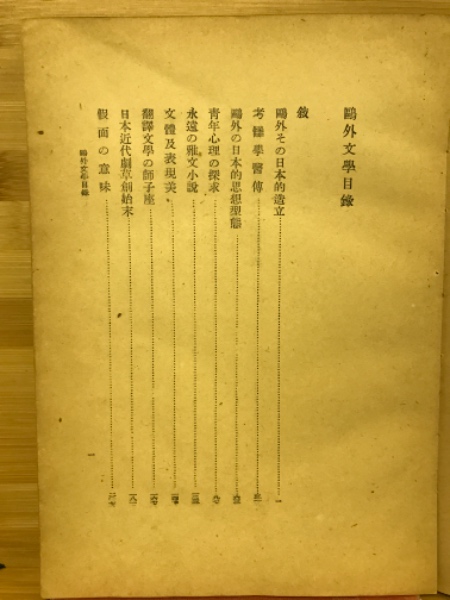 鷗外文學目錄
敍
鷗外その日本的造立 一
考證學醫傳
鷗外の日本的思想型態
青年心理の探求
永遠の雅文小說
文體及表現美
翻譯文學の獅子座
日本近代劇草創始末
假面の意味
鷗外文學目錄
一